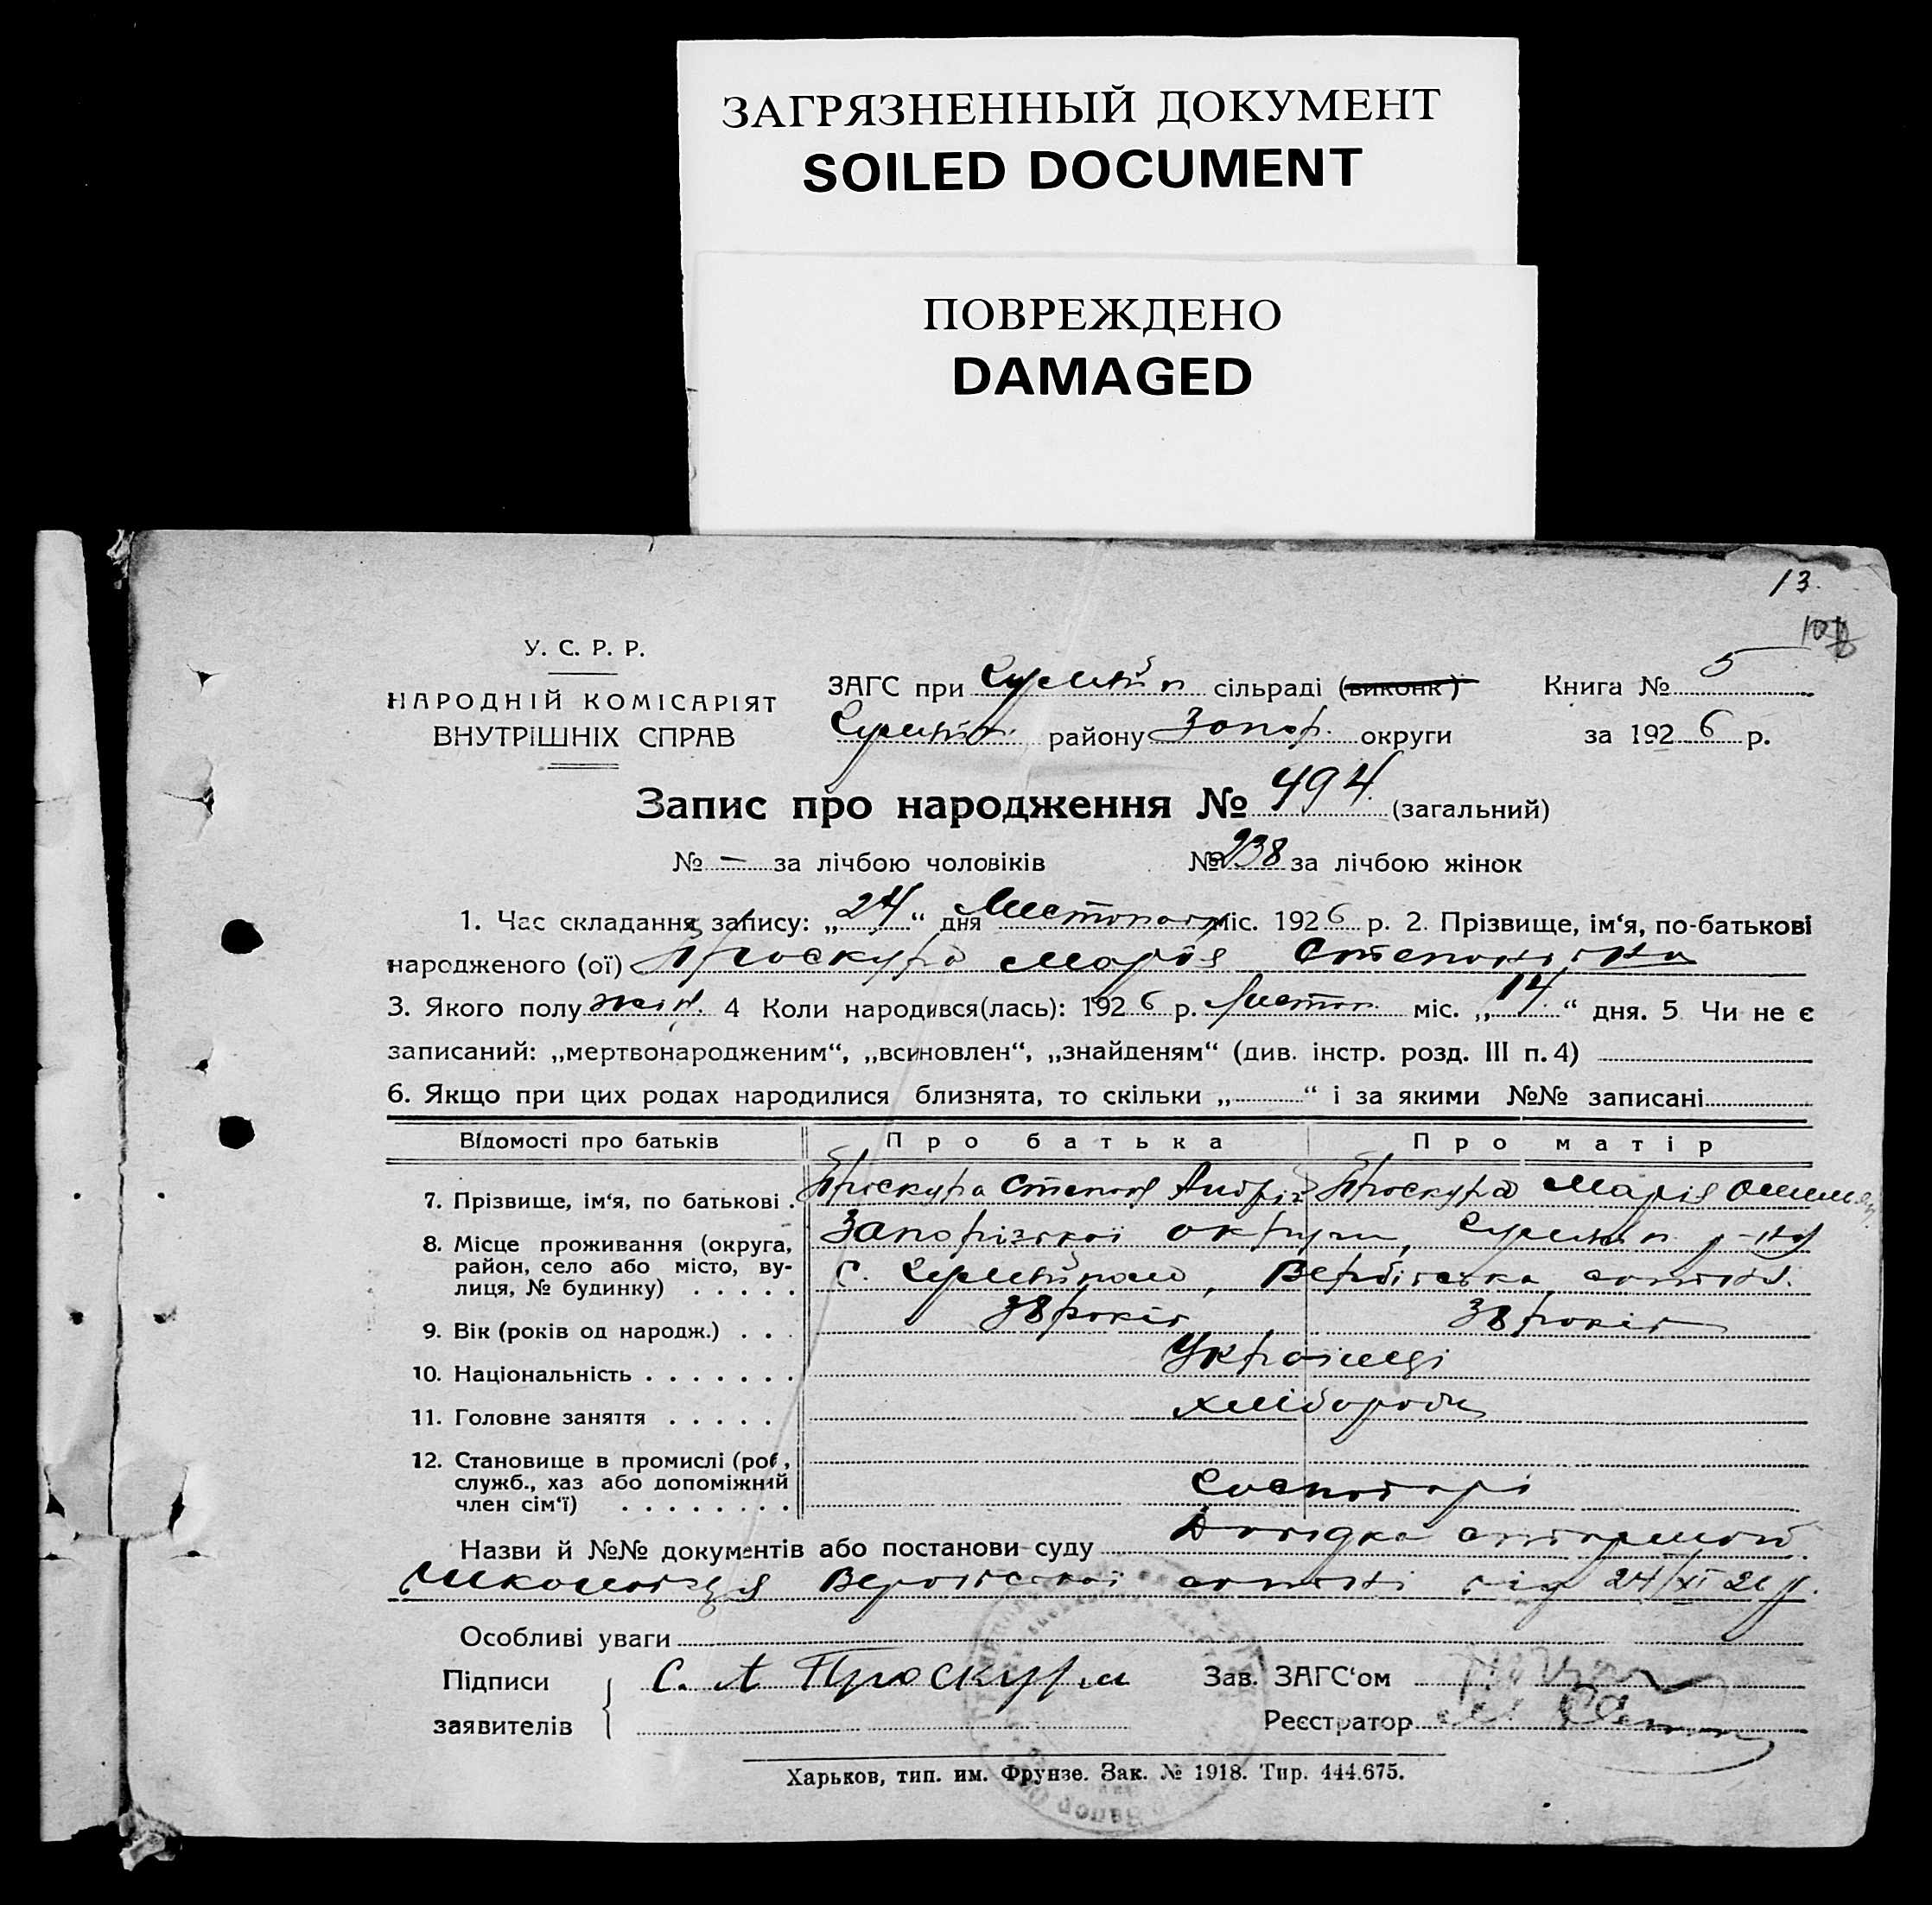 ЗАГРЯЗНЕННЫЙ ДОКУМЕНТ
SOILED DOCUMENT
ПОВРЕЖДЕНО
DAMAGED
13.
У. С. Р. Р.
НАРОДНІЙ КОМІСАРІЯТ
ВНУТРІШНІХ СПРАВ
ЗАГС при сільраді (виконк)
району Запор. округи
Книга № 5
за 1926 р.
Запис про народження № 494 (загальний)
№ — за лічбою чоловіків № 238 за лічбою жінок
1. Час складання запису: „24“ дня Листопад міс. 1926 р. 2. Прізвище, ім‘я, по-батькові
народженого (ої) Проскура Марія Степанівна
3. Якого полу жін. 4 Коли народився(лась): 1926 р. Листоп. міс. „14“ дня. 5 Чи не є
записаний: „мертвонародженим“, „всиновлен“, „знайденям“ (див. інстр. розд. III п. 4)
6. Якщо при цих родах народилися близнята, то скільки „ “ і за якими №№ записані
Відомості про батьків Про батька Про матір
7. Прізвище, ім‘я, по батькові . Проскура Степан Андрій Проскура Марія
8. Місце проживання (округа, район, село або місто, вулиця, № будинку) . . . . . Запорізької округи, р-ну
с. , Вербівська сотня.
9. Вік (років од народж.) . . . 38 років 38 років
10. Національність . . . . . . . Українці
11. Головне заняття . . . . . хлібороби
12. Становище в промислі (роб, служб., хаз або допоміжний член сім‘ї) . . . . . . . . Господарі
Назви й №№ документів або постанови суду Довідка
сотні від 24/XI 26 р.
Особливі уваги
Підписи заявителів С. А Проскура
Зав. ЗАГС‘ом
Реєстратор
Харьков, тип. им. Фрунзе. Зак. № 1918. Тир. 444.675.